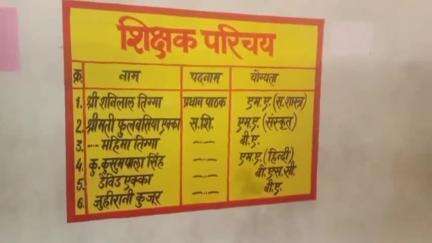 शिक्षक परिचय
क्र. नाम पदनाम योग्यता
1. श्री शनिलाल तिग्गा प्रधान पाठक एम.ए.(स.शास्त्र)
2. श्रीमती फुलबसिया एक्का स.शि. एम.ए.(संस्कृत)
3. --- महिमा तिग्गा --"-- बी.ए.
4. कु. कुसुमपाला सिंह --"-- एम.ए.(हिन्दी)
5. डेविड एक्का --"-- बी.एस.सी.
6. जुहीरानी कुजूर --"-- बी.ए.